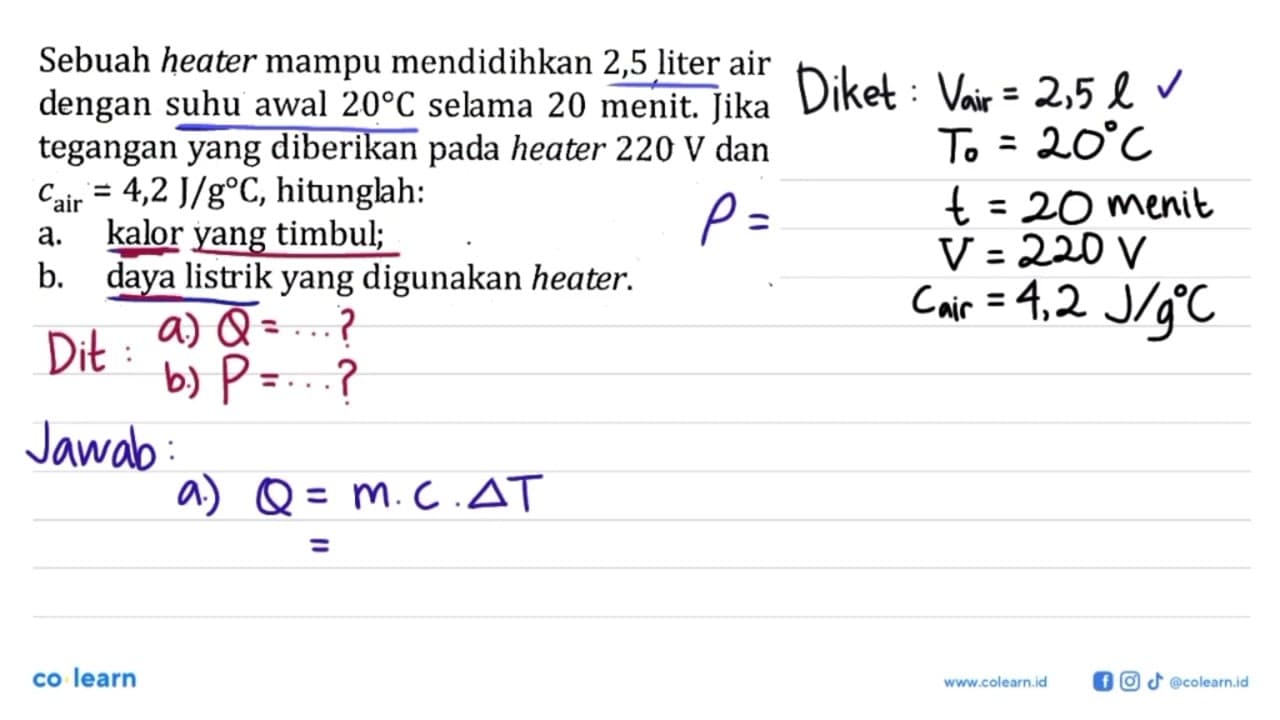 Sebuah heater mampu mendidihkan 2,5 liter air
dengan suhu awal 20°C selama 20 menit. Jika
tegangan yang diberikan pada heater 220 V dan
c_air = 4,2 J/g°C, hitunglah:
a. kalor yang timbul;
b. daya listrik yang digunakan heater.
Diket : Vair = 2,5 l ✓
T₀ = 20°C
t = 20 menit
V = 220 V
Cair = 4,2 J/g°C
ρ =
Dit : a.) Q = ...?
b.) P = ...?
Jawab :
a.) Q = m . c . ΔT
=
co learn
www.colearn.id
@colearn.id